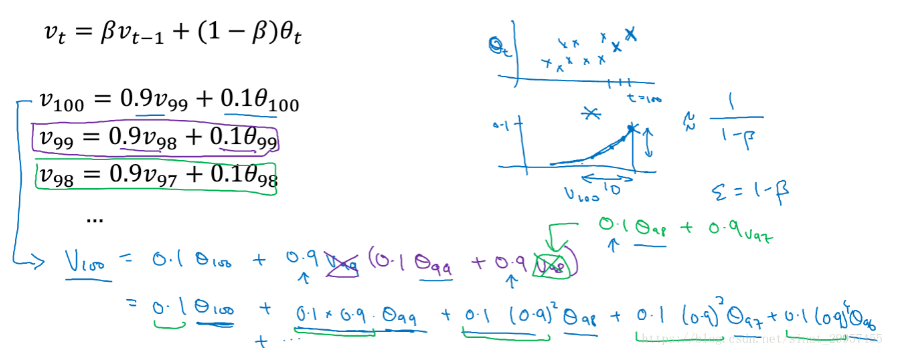 v_t = βv_{t−1} + (1 − β)θ_t
v_{100} = 0.9v_{99} + 0.1θ_{100}
v_{99} = 0.9v_{98} + 0.1θ_{99}
v_{98} = 0.9v_{97} + 0.1θ_{98}
...
θ_t
t=100
0.1
V_{100}
10
≈ 1/(1-β)
ε = 1-β
0.1 θ_{98} + 0.9 v_{97}
V_{100} = 0.1 θ_{100} + 0.9 V_{99} (0.1 θ_{99} + 0.9 V_{98})
= 0.1 θ_{100} + 0.1 × 0.9 · θ_{99} + 0.1 (0.9)² θ_{98} + 0.1 (0.9)³ θ_{97} + 0.1 (0.9)⁴ θ_{96}
+ ...